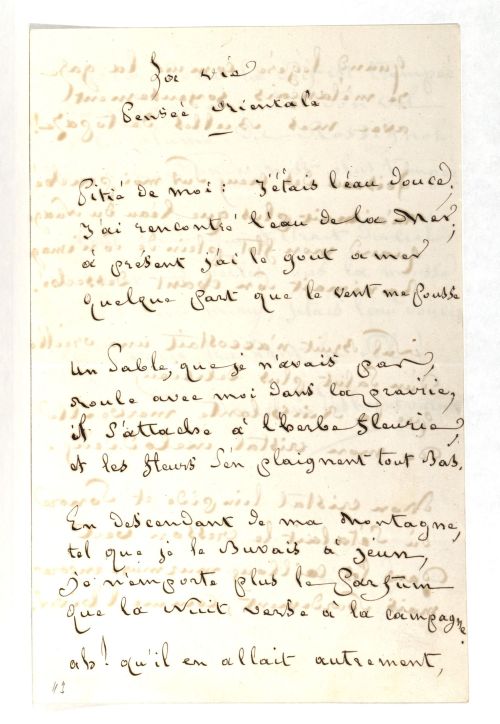 La vie
Pensée orientale
Pitié de moi : J'étais l'éau douce,
J'ai rencontré l'éau de la Mer,
à présent j'ai le gout amer
quelque part que le vent me pousse
un Sable, que je n'avais pas,
roule avec moi dans la prairie,
il s'attache à l'herbe fleurie,
et les fleurs s'en plaignent tout Bas.
En descendant de ma Montagne,
tel que je le Buvais à jeun,
je n'emporte plus le Parfum
que la Nuit verse à la campagne.
ah! qu'il en allait autrement,
43